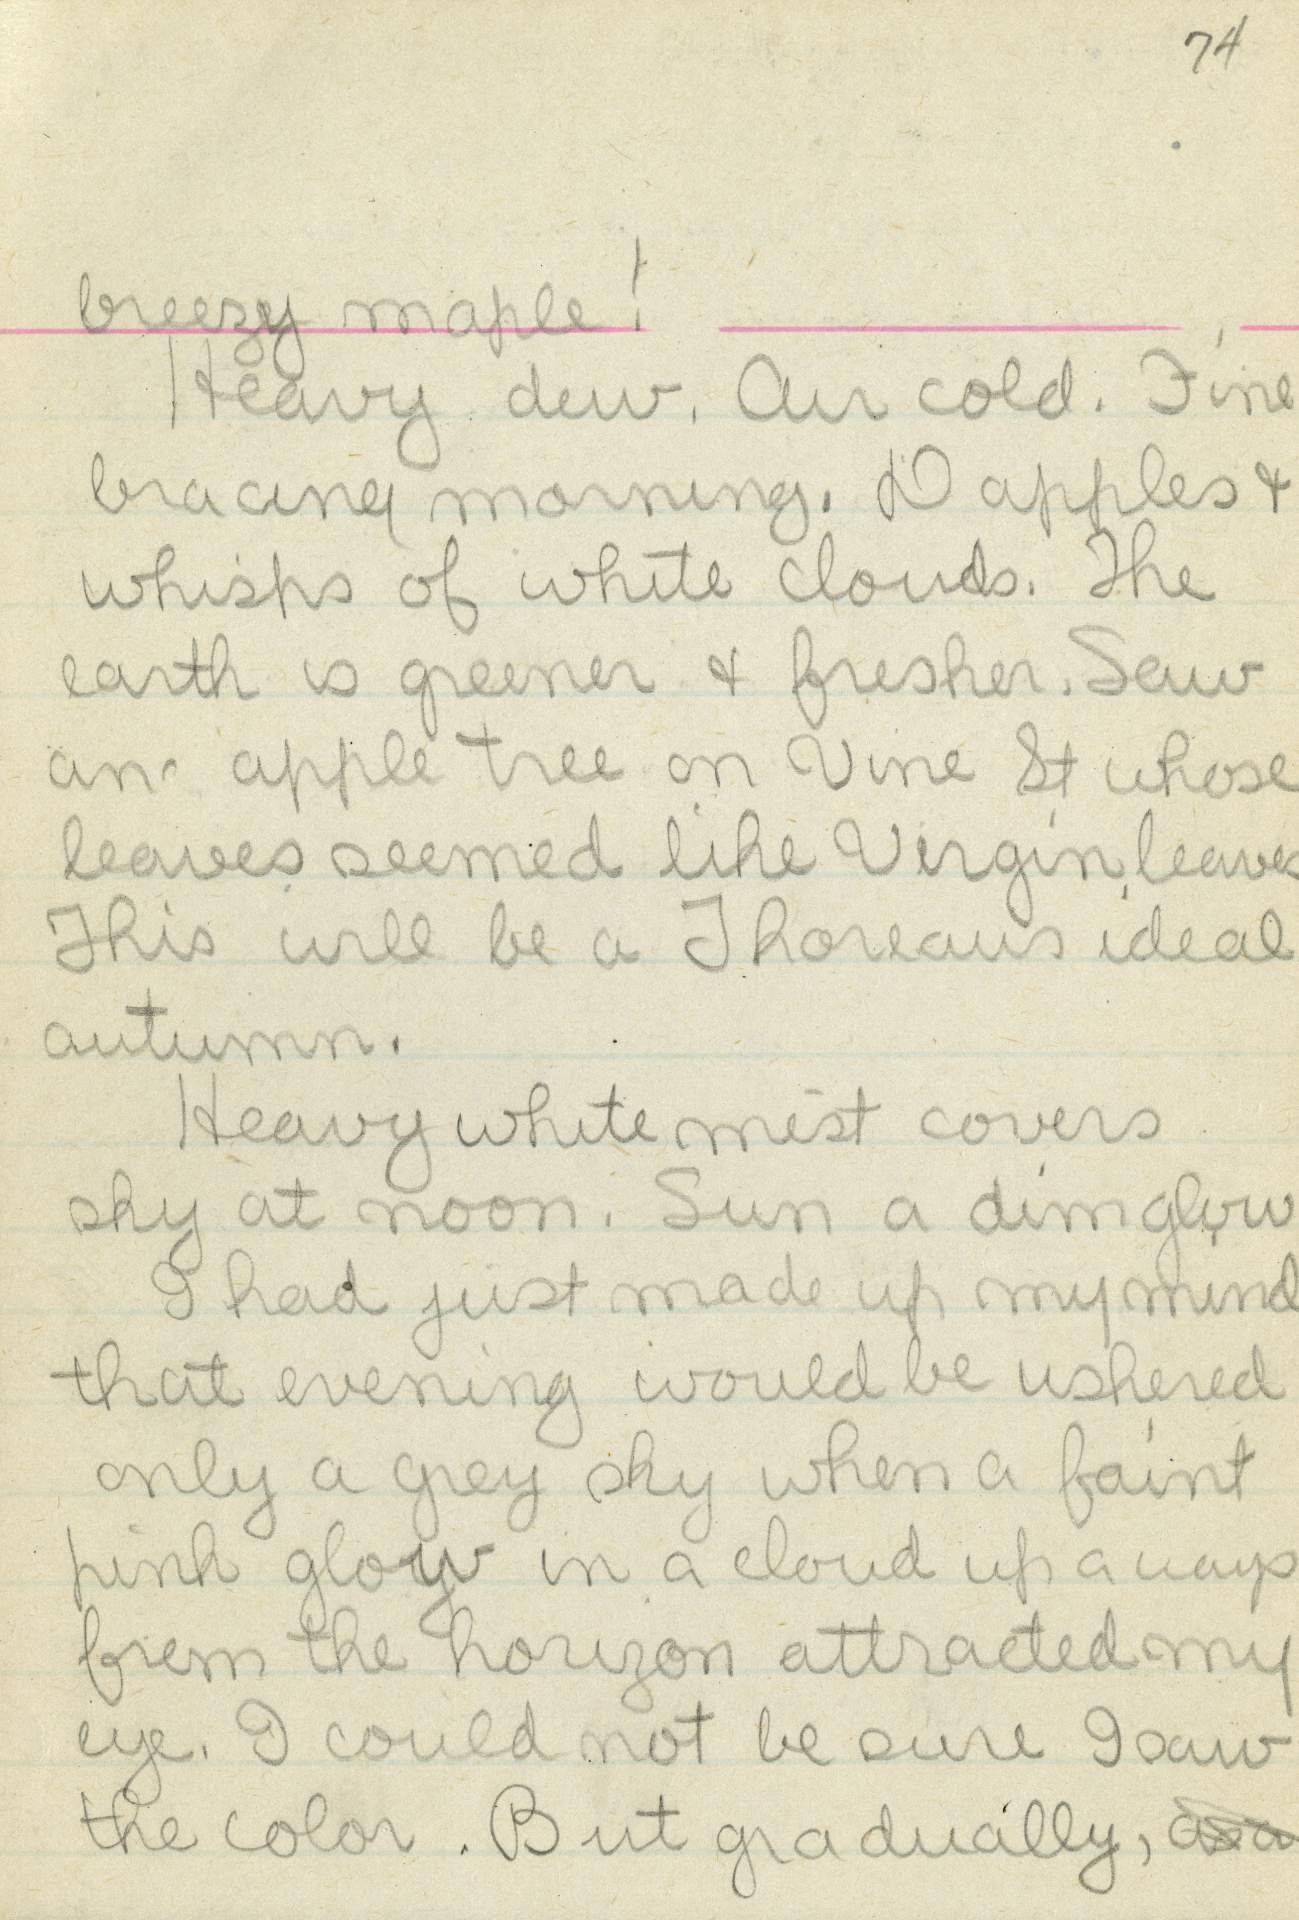 74
breezy maple!
Heavy dew. Air cold. Fine
bracing morning. D apples &
whisps of white clouds. The
earth is greener & fresher. Saw
an apple tree on Vine St whose
leaves seemed like Virgin leaves
This will be a Thoreaus ideal
autumn.
Heavy white mist covers
sky at noon. Sun a dim glow
I had just made up my mind
that evening would be ushered
only a grey sky when a faint
pink glow in a cloud up a ways
from the horizon attracted my
eye. I could not be sure I saw
the color. But gradually, as a